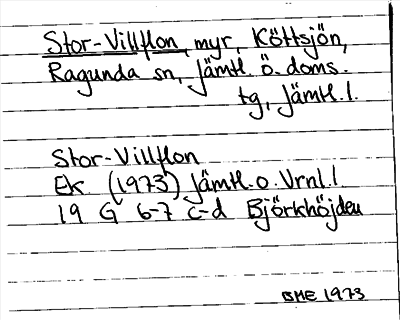 Stor-Villflon, myr, Köttsjön,
Ragunda sn, Jämtl. ö. doms.
tg, Jämtl. l.
Stor-Villflon
Ek (1973) Jämtl. o. Vrnl. l
19 G 6-7 c-d Björkhöjden
BME 1973